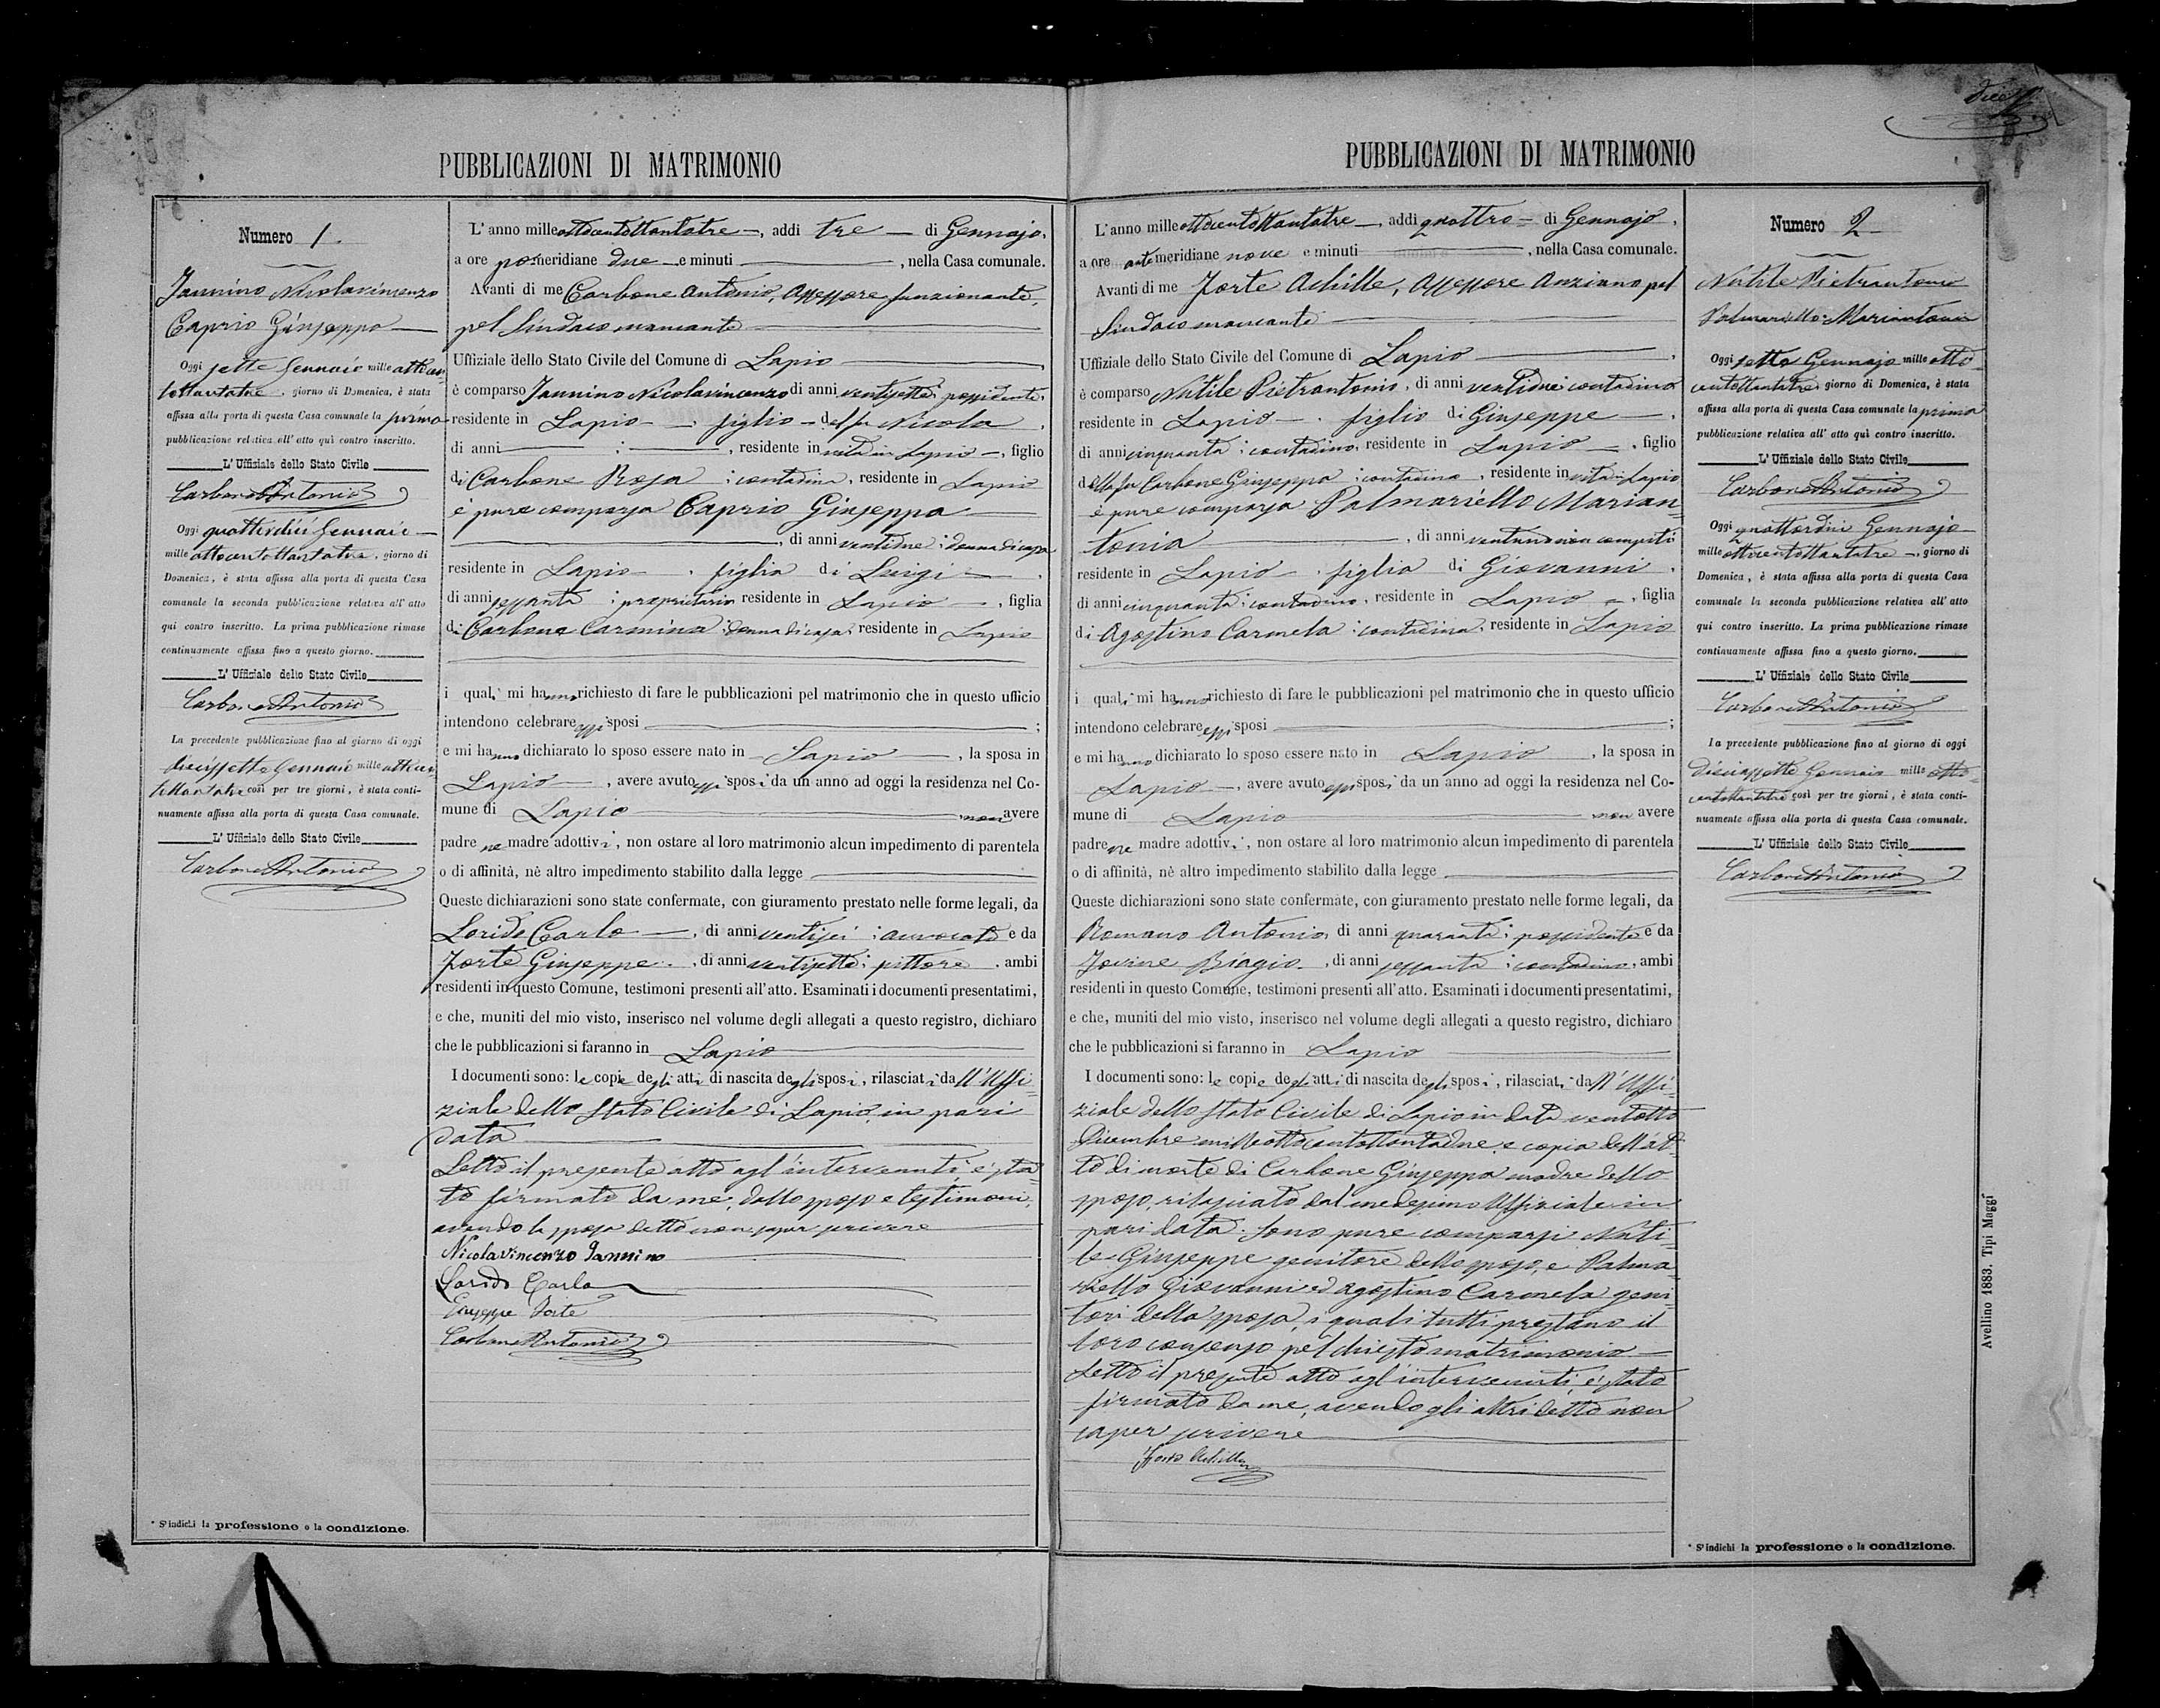 PUBBLICAZIONI DI MATRIMONIO
Numero 1.
Jannino Nicolavincenzo
Caprio Giuseppa
Oggi sette Gennaio mille ottocen
tottantatre, giorno di Domenica, è stata
affissa alla porta di questa Casa comunale la prima
pubblicazione relativa all' atto quì contro inscritto.
L' Uffiziale dello Stato Civile
Carbone Antonio
Oggi quattordici Gennaio
mille ottocentottantatre, giorno di
Domenica, è stata affissa alla porta di questa Casa
comunale la seconda pubblicazione relativa all' atto
qui contro inscritto. La prima pubblicazione rimase
continuamente affissa fino a questo giorno.
L' Uffiziale dello Stato Civile
Carbone Antonio
La precedente pubblicazione fino al giorno di oggi
diecissette Gennaio mille ottocen
tottantatre così per tre giorni, è stata conti-
nuamente affissa alla porta di questa Casa comunale.
L' Uffiziale dello Stato Civile
Carbone Antonio
* S'indichi la professione o la condizione.
L' anno mille ottocentottantatre, addi tre di Gennajo,
a ore pomeridiane due e minuti , nella Casa comunale.
Avanti di me Carbone Antonio, Assessore funzionante
pel Sindaco mancante
Uffiziale dello Stato Civile del Comune di Lapio,
è comparso Jannino Nicolavincenzo di anni ventisette; possidente,
residente in Lapio, figlio del fu Nicola,
di anni , residente in vita in Lapio, figlio
di Carbone Rosa; contadina, residente in Lapio
è pure comparsa Caprio Giuseppa
, di anni ventidue; donna di casa
residente in Lapio, figlia di Luigi,
di anni sessanta; proprietario residente in Lapio, figlia
di Carbone Carmina; donna di casa, residente in Lapio
i quali mi hanno richiesto di fare le pubblicazioni pel matrimonio che in questo ufficio
intendono celebrare essi sposi ;
e mi hanno dichiarato lo sposo essere nato in Lapio, la sposa in
Lapio, avere avuto essi sposi da un anno ad oggi la residenza nel Co-
mune di Lapio non avere
padre ne madre adottivi, non ostare al loro matrimonio alcun impedimento di parentela
o di affinità, nè altro impedimento stabilito dalla legge
Queste dichiarazioni sono state confermate, con giuramento prestato nelle forme legali, da
Lorido Carlo, di anni ventisei; avvocato e da
Forte Giuseppe, di anni ventisette; pittore, ambi
residenti in questo Comune, testimoni presenti all' atto. Esaminati i documenti presentatimi,
e che, muniti del mio visto, inserisco nel volume degli allegati a questo registro, dichiaro
che le pubblicazioni si faranno in Lapio
I documenti sono: le copie degli atti di nascita degli sposi, rilasciati dall'Uffi-
ziale dello Stato Civile di Lapio, in pari
data
Letto il presente atto agl'intervenuti, è sta-
to firmato da me, dallo sposo e testimoni,
avendo la sposa detto non saper scrivere
Nicolavincenzo Jannino
Lorido Carlo
Giuseppe Forte
Carbone Antonio
PUBBLICAZIONI DI MATRIMONIO
L' anno mille ottocentottantatre, addi quattro di Gennajo,
a ore antemeridiane nove e minuti , nella Casa comunale.
Avanti di me Forte Achille, Assessore Anziano pel
Sindaco mancante
Uffiziale dello Stato Civile del Comune di Lapio,
è comparso Nutile Pietrantonio, di anni ventidue; contadino
residente in Lapio, figlio di Giuseppe,
di anni cinquanta; contadino, residente in Lapio, figlio
della fu Carbone Giuseppa; contadina, residente in vita in Lapio
è pure comparsa Palmariello Marian-
tonia, di anni ventuno non compiti
residente in Lapio, figlia di Giovanni,
di anni cinquanta; contadino, residente in Lapio, figlia
di Agostino Carmela; contadina, residente in Lapio
i quali mi hanno richiesto di fare le pubblicazioni pel matrimonio che in questo ufficio
intendono celebrare essi sposi ;
e mi hanno dichiarato lo sposo essere nato in Lapio, la sposa in
Lapio, avere avuto essi sposi da un anno ad oggi la residenza nel Co-
mune di Lapio non avere
padre ne madre adottivi, non ostare al loro matrimonio alcun impedimento di parentela
o di affinità, nè altro impedimento stabilito dalla legge
Queste dichiarazioni sono state confermate, con giuramento prestato nelle forme legali, da
Romano Antonio, di anni quaranta; possidente e da
Jovine Biagio, di anni sessanta; contadino, ambi
residenti in questo Comune, testimoni presenti all' atto. Esaminati i documenti presentatimi,
e che, muniti del mio visto, inserisco nel volume degli allegati a questo registro, dichiaro
che le pubblicazioni si faranno in Lapio
I documenti sono: le copie degli atti di nascita degli sposi, rilasciati dall'Uffi-
ziale dello Stato Civile di Lapio in data ventotto
Dicembre milleottocentottantadue, e copia dell'at-
to di morte di Carbone Giuseppa madre dello
sposo, rilasciato dal medesimo Uffiziale in
pari data. Sono pure comparsi Nuti-
le Giuseppe genitore dello sposo, e Palma-
riello Giovanni ed Agostino Carmela geni-
tori della sposa, i quali tutti prestano il
loro consenso pel chiesto matrimonio
Letto il presente atto agl'intervenuti, è stato
firmato da me, avendo gli altri detto non
saper scrivere
Forte Achille
Numero 2
Nutile Pietrantonio
Palmariello Mariantonia
Oggi sette Gennajo mille otto-
centottantatre, giorno di Domenica, è stata
affissa alla porta di questa Casa comunale la prima
pubblicazione relativa all' atto quì contro inscritto.
L' Uffiziale dello Stato Civile
Carbone Antonio
Oggi quattordici Gennajo
mille ottocentottantatre, giorno di
Domenica, è stata affissa alla porta di questa Casa
comunale la seconda pubblicazione relativa all' atto
qui contro inscritto. La prima pubblicazione rimase
continuamente affissa fino a questo giorno.
L' Uffiziale dello Stato Civile
Carbone Antonio
La precedente pubblicazione fino al giorno di oggi
diciassette Gennaio mille otto-
centottantatre così per tre giorni, è stata conti-
nuamente affissa alla porta di questa Casa comunale.
L' Uffiziale dello Stato Civile
Carbone Antonio
* S'indichi la professione o la condizione.
Avellino 1883. Tipi Maggi